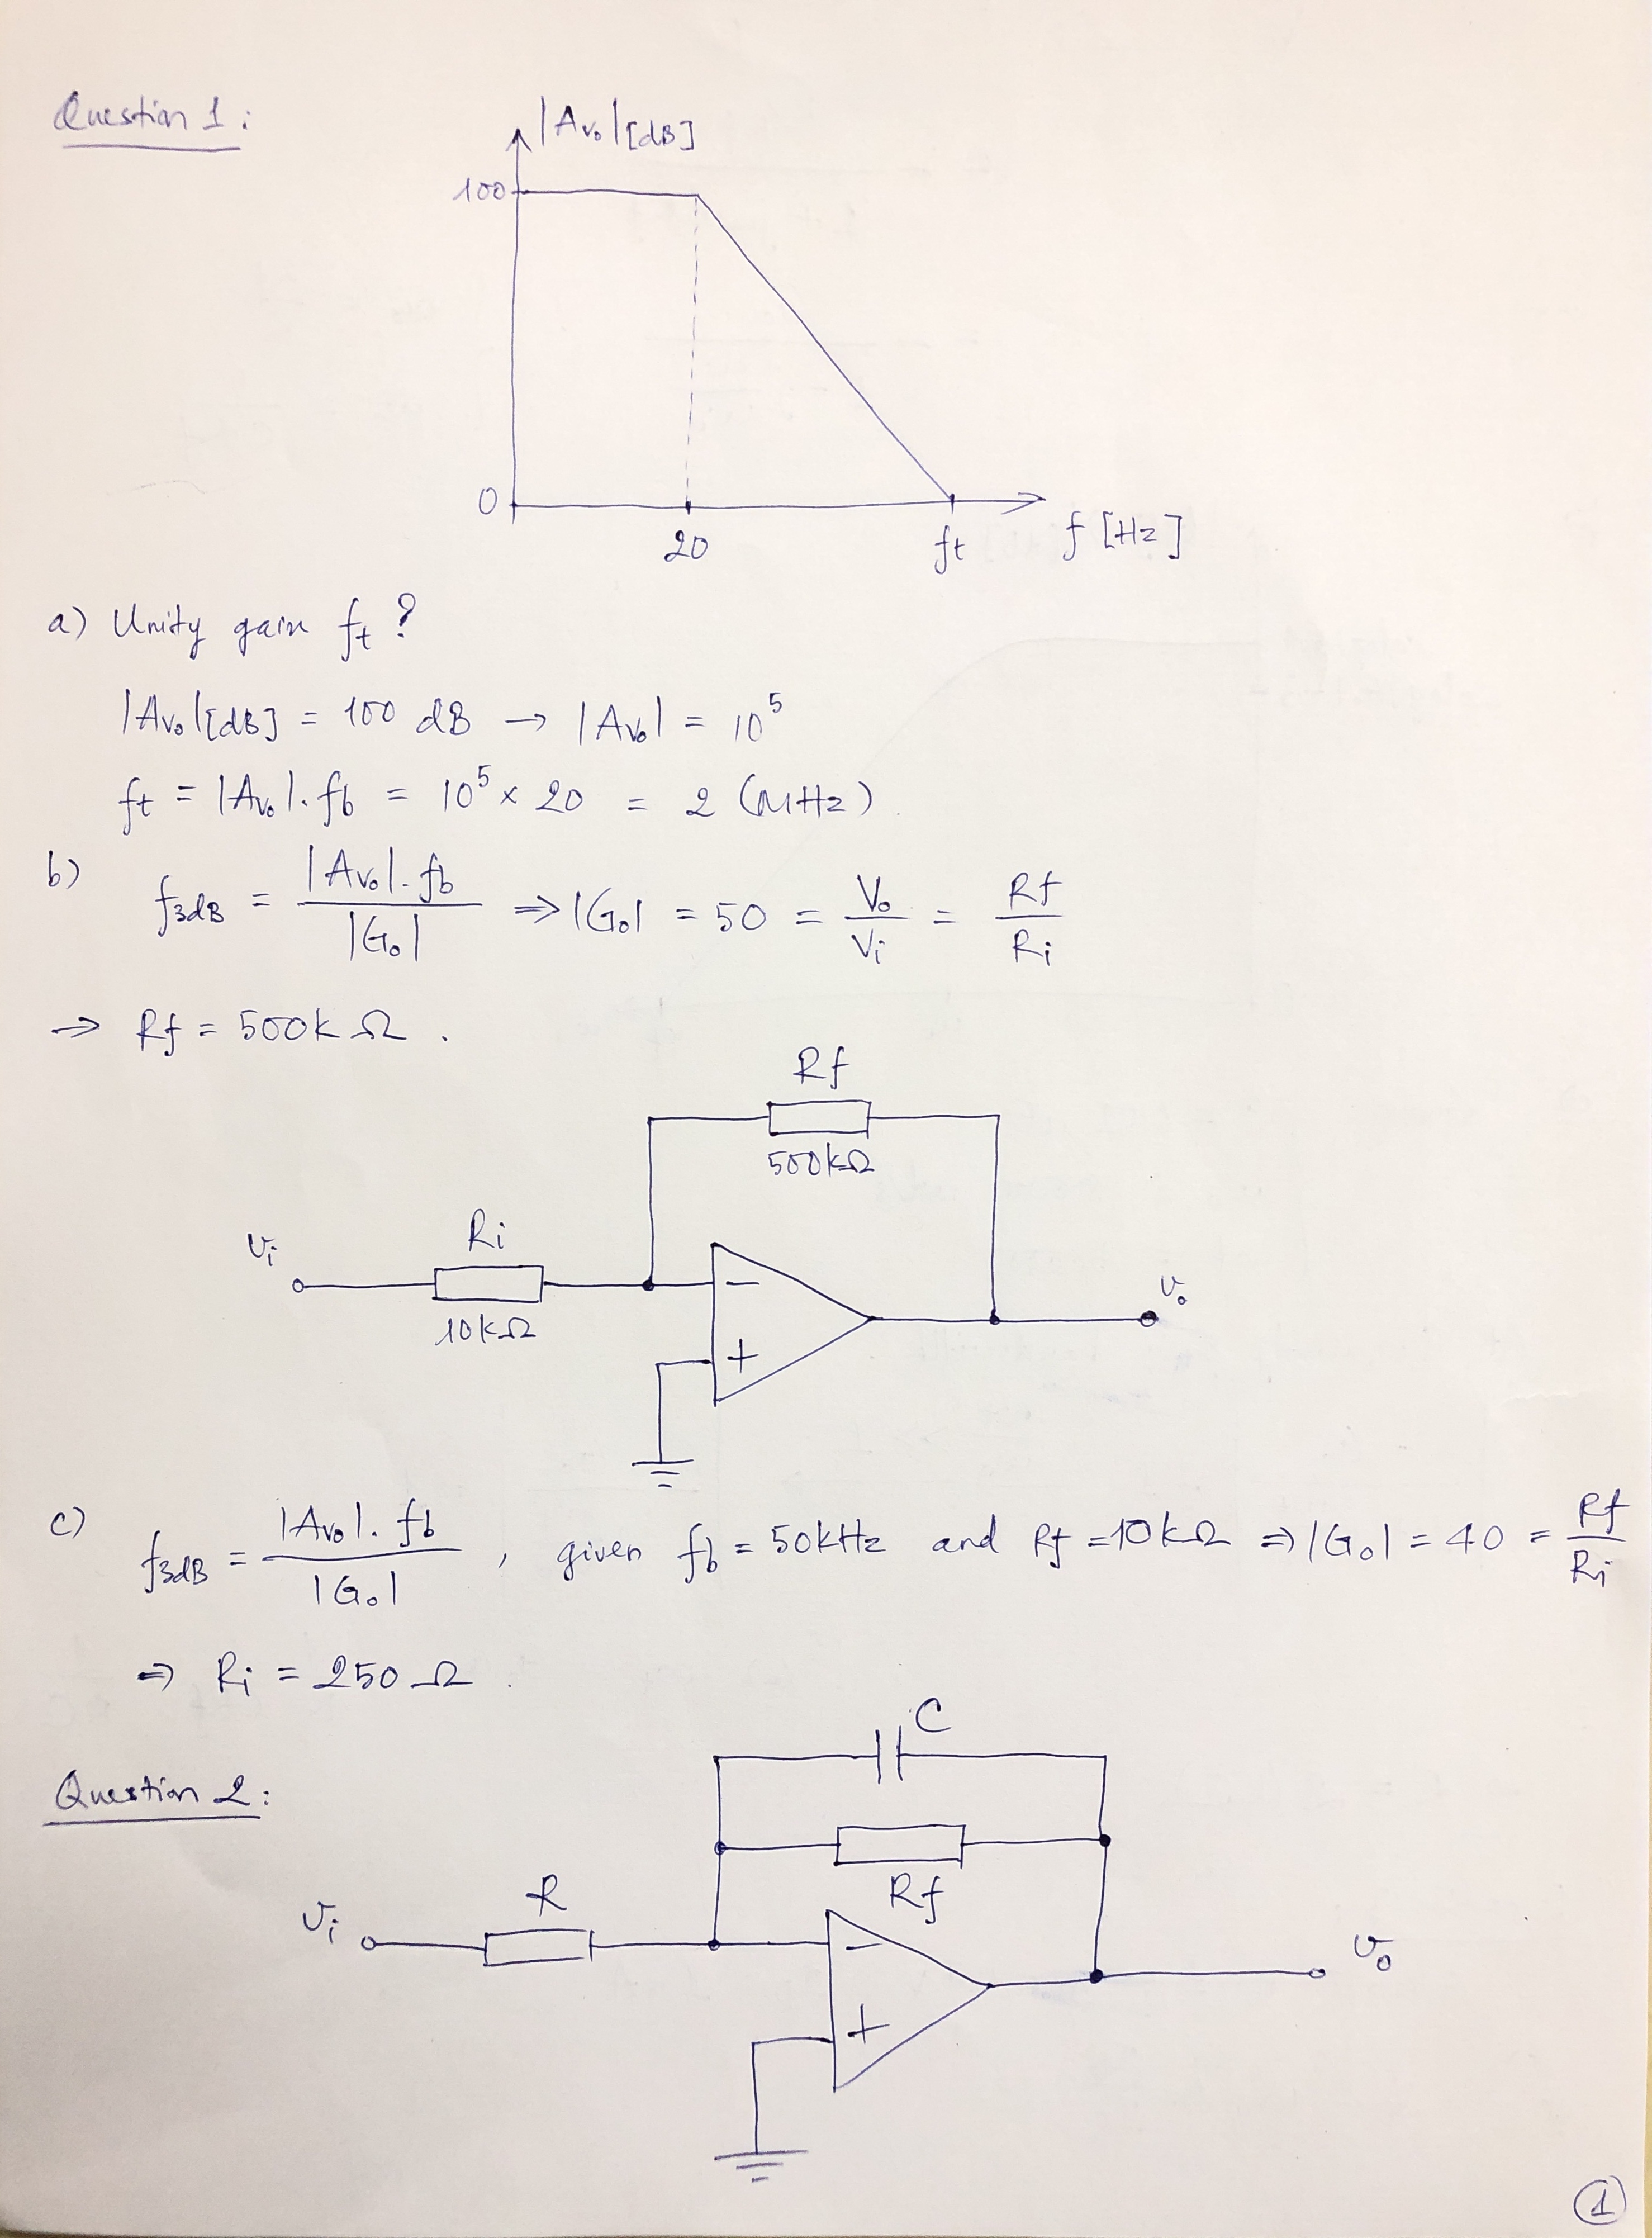 Question 1:
|Av₀|[dB]
100
0
20
ft
f [Hz]
a) Unity gain ft ?
|Av₀|[dB] = 100 dB → |Av₀| = 10⁵
ft = |Av₀|.fb = 10⁵ × 20 = 2 (MHz)
b) f3dB = |Av₀|.fb / |G₀| => |G₀| = 50 = Vo / Vi = Rf / Ri
=> Rf = 500k Ω.
Rf
500kΩ
vi
Ri
10kΩ
−
+
vo
c) f3dB = |Av₀|.fb / |G₀| , given fb = 50kHz and Rf = 10kΩ => |G₀| = 40 = Rf / Ri
=> Ri = 250 Ω.
Question 2:
C
Rf
vi
R
−
+
vo
1